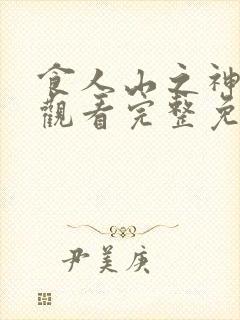 食人山之神
觀看完整免
尹美庚